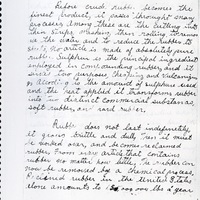 Before crude rubber becomes the
finest product, it passes through many
processes. Among these are the cutting into
then strips, washing, then rolling
as the water and to reduce the rubber to
article is made of absolutely pure
rubber. Sulphur is the principal ingredient
employed in compounding rubber and it
two purposes, and vulcanizing
According to the amount of sulphur used
and the heat applied it transforms rubber
into two distinct commercial substances,
soft rubber, and hard rubber.
Rubber does not last indefinitely
it grows brittle and dully, even if neatly
a hooked wear, and becomes reclaimed
rubber. From every article that contains
rubber no matter how little, the rubber can
now be removed by a chemical process.
Reclaimed rubber in the United States
alone amounts to 150,000,000 lbs a year